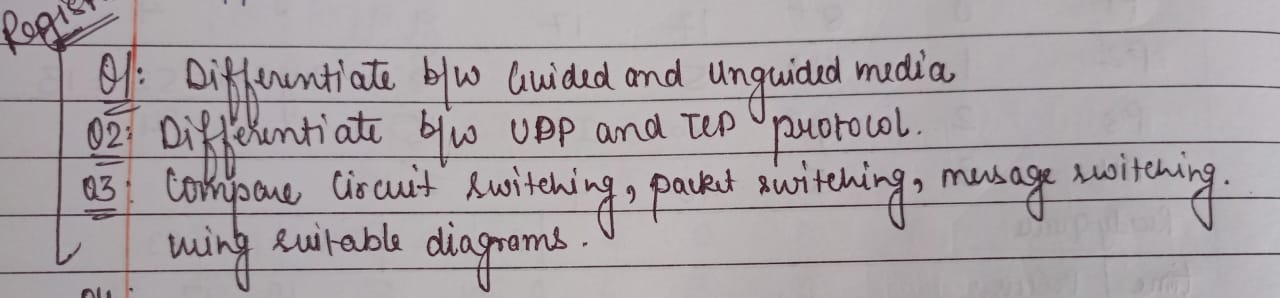 Q1: Differentiate b/w Guided and Unguided media
Q2: Differentiate b/w UDP and TCP protocol.
Q3: Compare Circuit switching, packet switching, message switching.
using suitable diagrams.